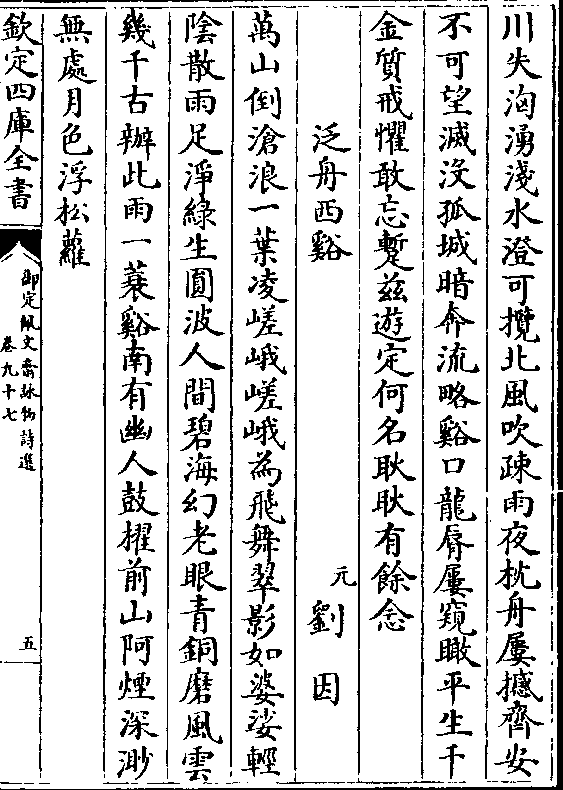 川失洶湧淺水澄可攬北風吹疎雨夜枕舟屢撼齊安
不可望滅沒孤城暗奔流略谿口龍脣屢窺瞰平生千
金質戒懼敢忘蹔兹遊定何名耿耿有餘念
泛舟西谿 元 劉因
萬山倒滄浪一葉凌嵯峨嵯峨為飛舞翠影如婆娑輕
陰散雨足淨綠生圓波人間碧海幻老眼青銅磨風雲
幾千古辦此雨一蓑谿南有幽人鼓櫂前山阿煙深渺
無處月色浮松蘿
欽定四庫全書
御定佩文齋詠物詩選
卷九十七
五